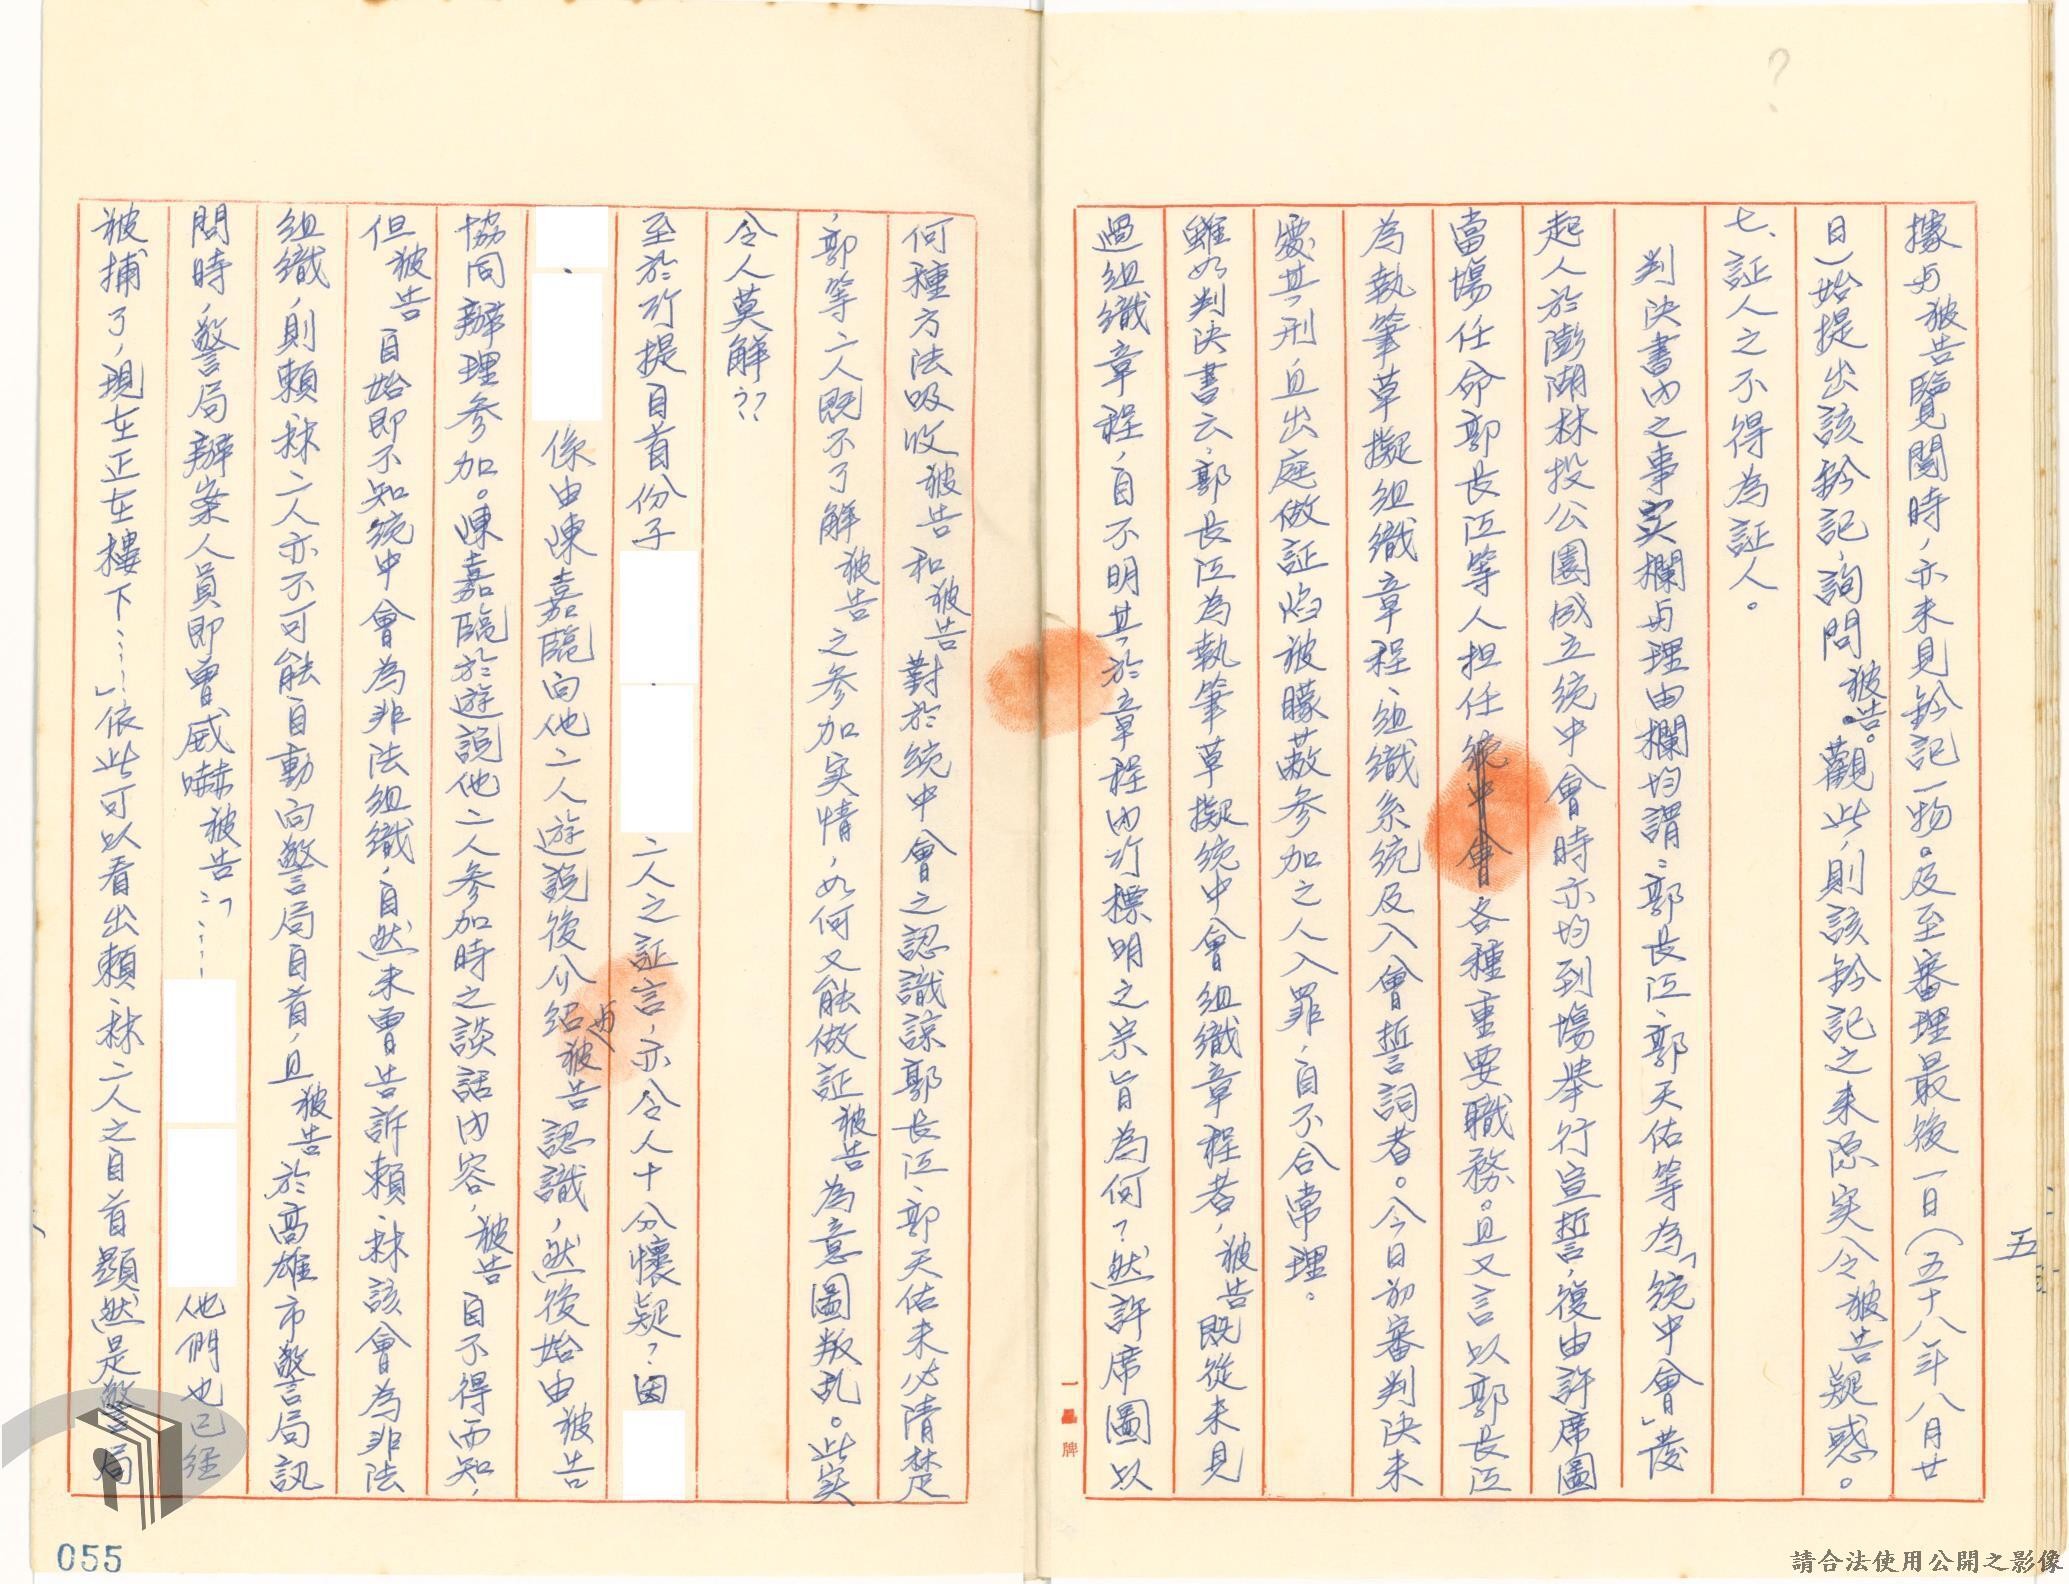 據与被告閱覽閱時，亦未見鈐記一物。及至審理最後一日(五十八年八月廿
日)始提出該鈐記，詢問被告。觀此，則該鈐記之来源实令被告疑惑。
七、証人之不得為証人。
判決書內之事実欄与理由欄均謂：郭長江、郭天佑等為「統中會」發
起人於澎湖林投公園成立統中會時亦均到場舉行宣誓，復由許席圖
當場任命郭長江等人担任統中會各種重要職務。且又言以郭長江
為執筆草擬組織章程、組織系統及入會誓詞者。今日初審判決未
受其刑，且出庭做証焰被矇蔽參加之人入罪，自不合常理。
雖如判決書云，郭長江為執筆草擬統中會組織章程者，被告既從未見
過組織章程，自不明其於章程內所標明之宗旨為何？然許席圖以
何種方法吸收被告和被告對於統中會之認識諒郭長江、郭天佑未必清楚
，郭等二人既不了解被告之參加实情，如何又能做証被告為意圖叛乱。此实
令人莫解??
至於所提自首份子
二人之証言，亦令人十分懷疑？因
係由陳嘉臨向他二人遊說後介紹与被告認識，然後始由被告
協同辦理參加。陳嘉臨於遊說他二人參加時之談話內容，被告自不得而知，
但被告自始即不知統中會為非法組織，自然未曾告訴賴秝該會為非法
組織，則賴秝二人亦不可能自動向警局自首，且被告於高雄市警局訊
問時，警局辦案人員即曾威嚇被告：「……
他們也已經
被捕了，現在正在樓下……」依此可以看出賴秝二人之自首顯然是警局
五
一
牌
055
請合法使用公開之影像